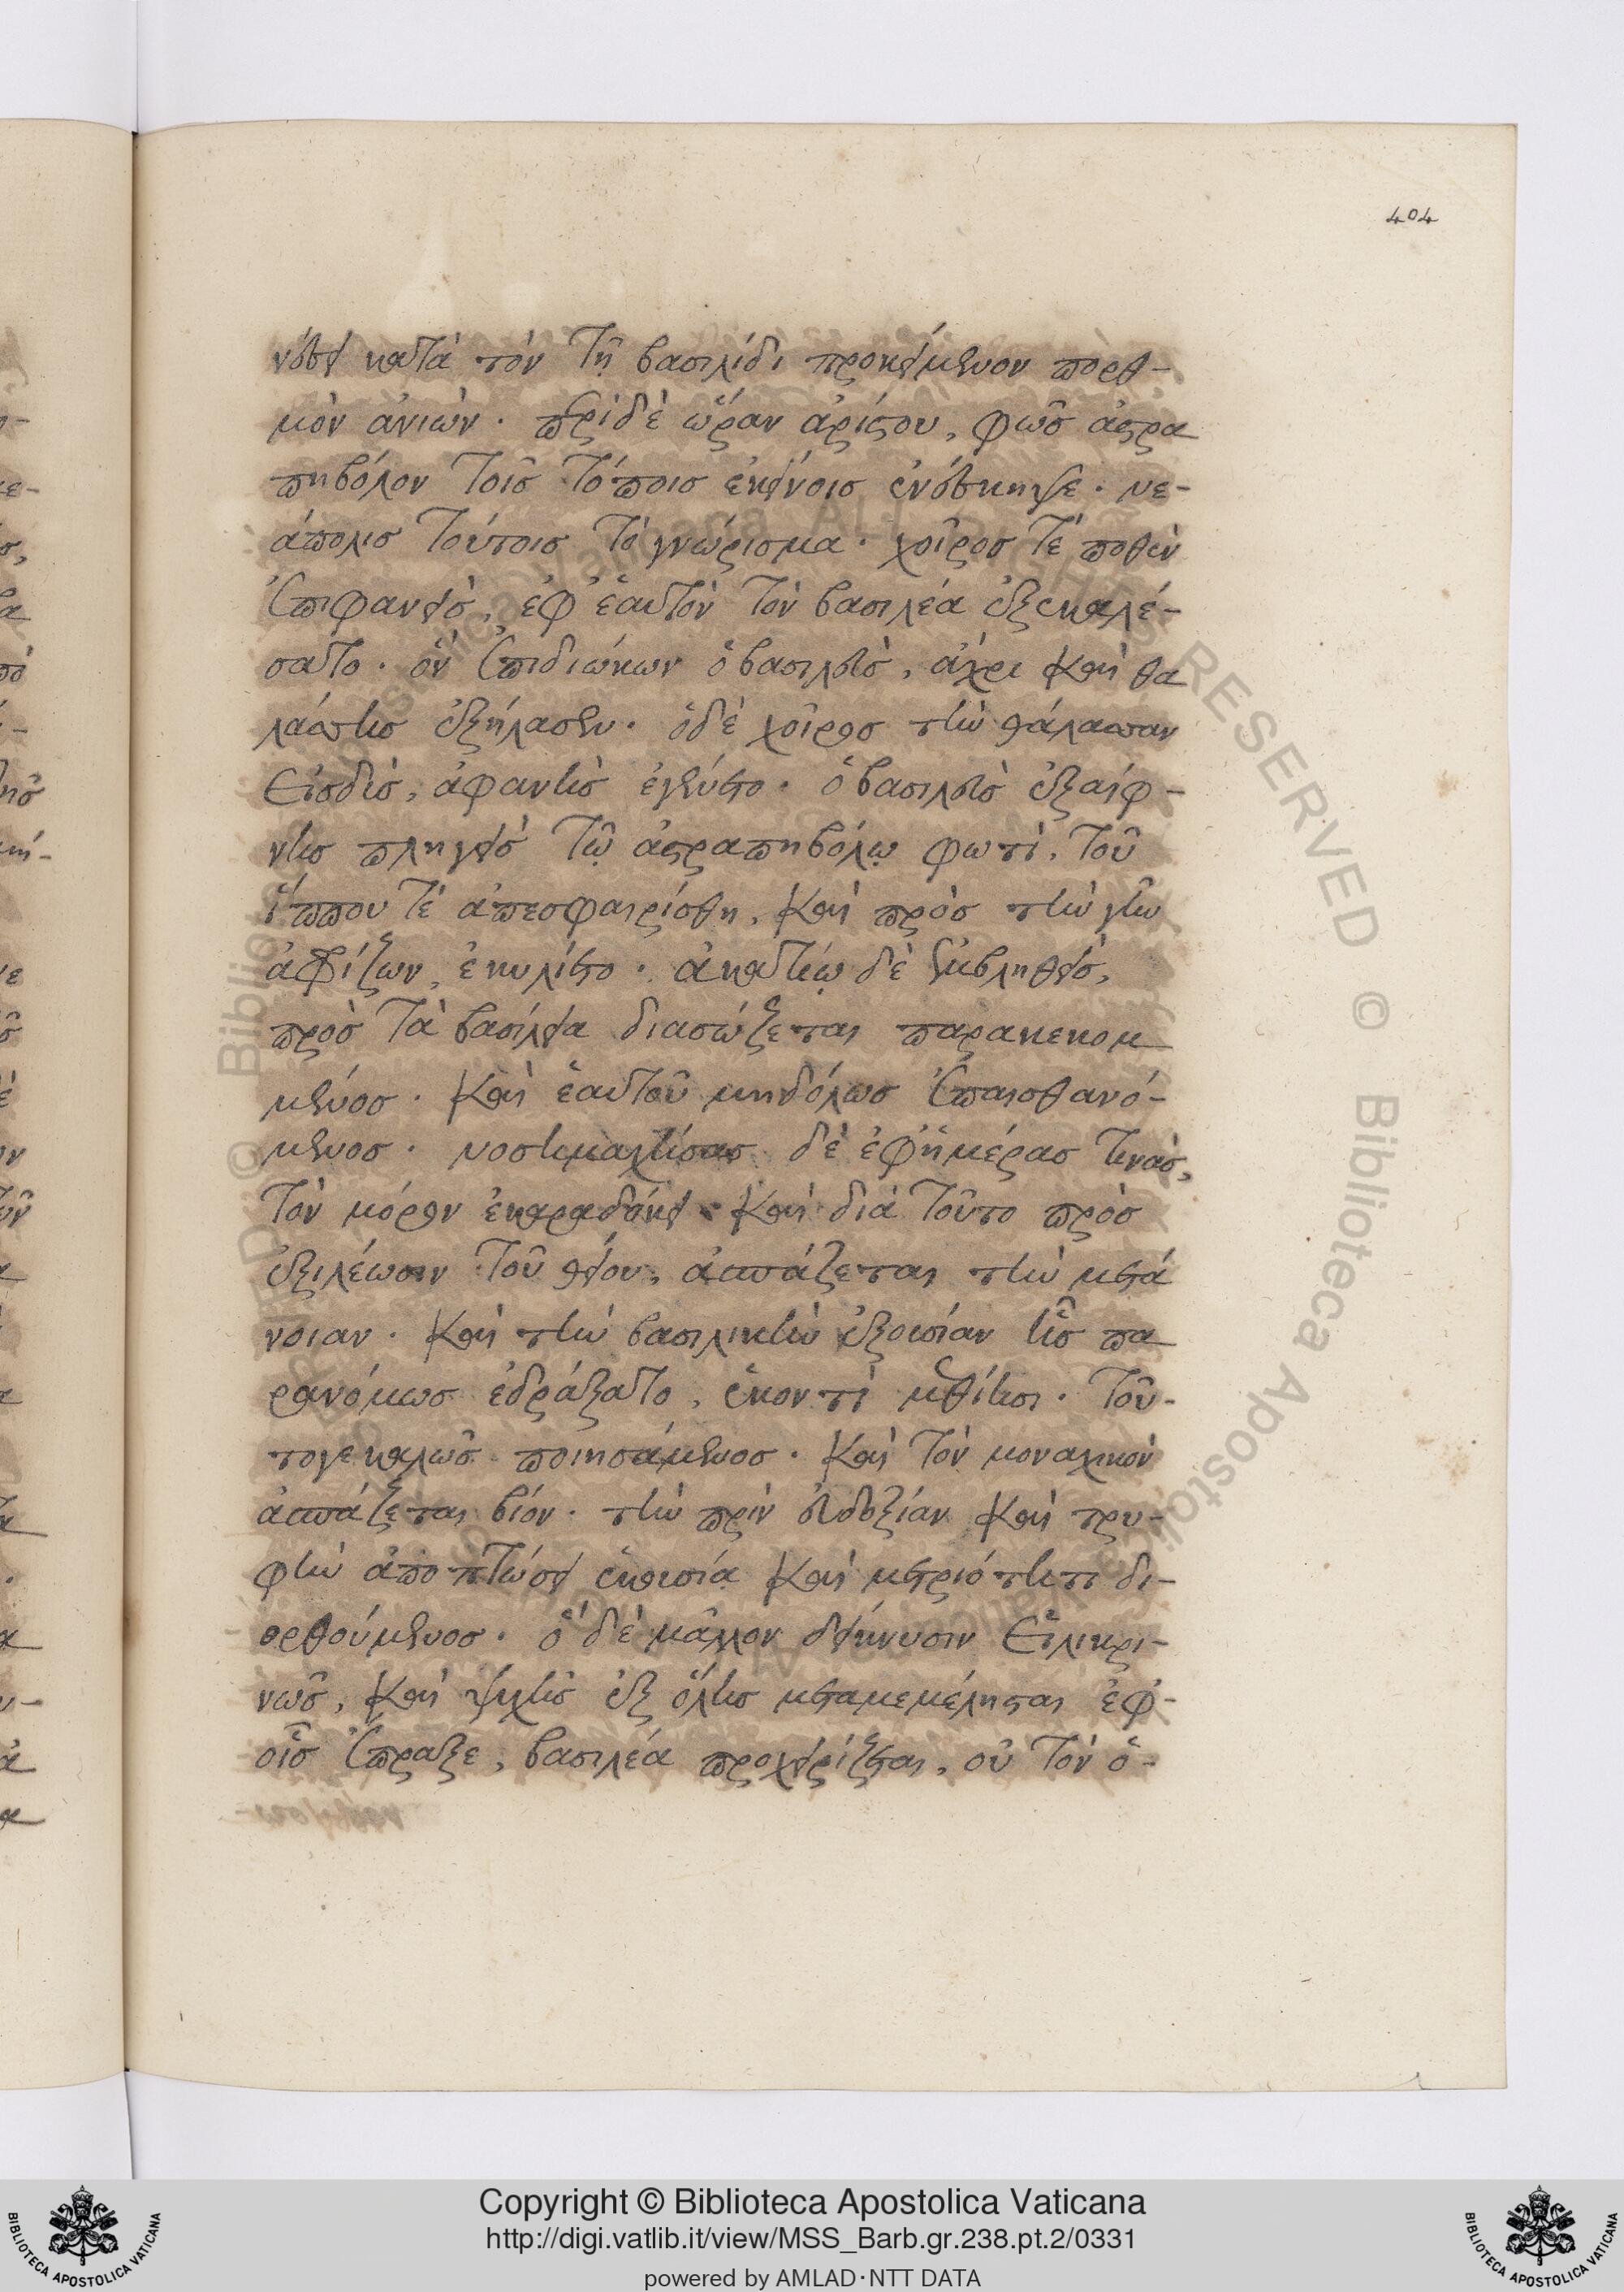 404
νεύει κατὰ τὸν τῇ βασιλίδι προκείμενον πορθ-
μὸν ἀνιών. περὶ δὲ ὥραν ἀρίστου, φῶς ἀστρα
πηβόλον τοῖς τόποις ἐκείνοις ἐνέσκηψε. νε-
άπολις τούτοις τὸ γνώρισμα. χοῖρος τέ ποθεν
ἐπιφανεὶς, ἐφ' ἑαυτὸν τὸν βασιλέα ἐξεκαλέ-
σατο. ὃν ἐπιδιώκων ὁ βασιλεὺς, ἄχρι καὶ θα
λάσσης ἐξήλασεν. ὁ δὲ χοῖρος τὴν θάλασσαν
εἰσδὺς, ἀφανὴς ἐγένετο. ὁ βασιλεὺς ἐξαίφ-
νης πληγεὶς τῷ ἀστραπηβόλῳ φωτὶ, τοῦ
ἵππου τέ ἀπεσφαιρίσθη, καὶ πρὸς τὴν γῆν
ἀφρίζων, ἐκυλίετο. ἀκατίῳ δὲ ἐμβληθεὶς,
πρὸς τὰ βασίλεια διασώζεται παρακεκομ
μένος. καὶ ἑαυτοῦ μηδόλως ἐπαισθανό-
μενος. νοσημαχήσας δὲ ἐφ' ἡμέρας τινὰς,
τὸν μόρον ἐκαραδόκει. καὶ διὰ τοῦτο πρὸς
ἐξιλέωσιν τοῦ θείου, ἀσπάζεται τὴν μετά
νοιαν. καὶ τὴν βασιλικὴν ἐξουσίαν ἧς πα
ρανόμως ἐδράξατο, ἑκοντὶ μεθίησι. τοῦ-
τό γε καλῶς ποιησάμενος. καὶ τὸν μοναχικὸν
ἀσπάζεται βίον. τὴν πρὶν εὐδοξίαν καὶ τρυ-
φὴν ἀποπτώσει ἑκουσίᾳ καὶ μετριότητι δι-
ορθούμενος. ὃ δὲ μᾶλλον δείκνυσιν εἰλικρι-
νῶς, καὶ ψυχῆς ἐξ ὅλης μεταμεμέληται ἐφ'-
οἷς ἔπραξε, βασιλέα προχειρίζεται, οὐ τὸν ὁ-
Copyright © Biblioteca Apostolica Vaticana
http://digi.vatlib.it/view/MSS_Barb.gr.238.pt.2/0331
powered by AMLAD·NTT DATA
BIBLIOTECA APOSTOLICA VATICANA
BIBLIOTECA APOSTOLICA VATICANA